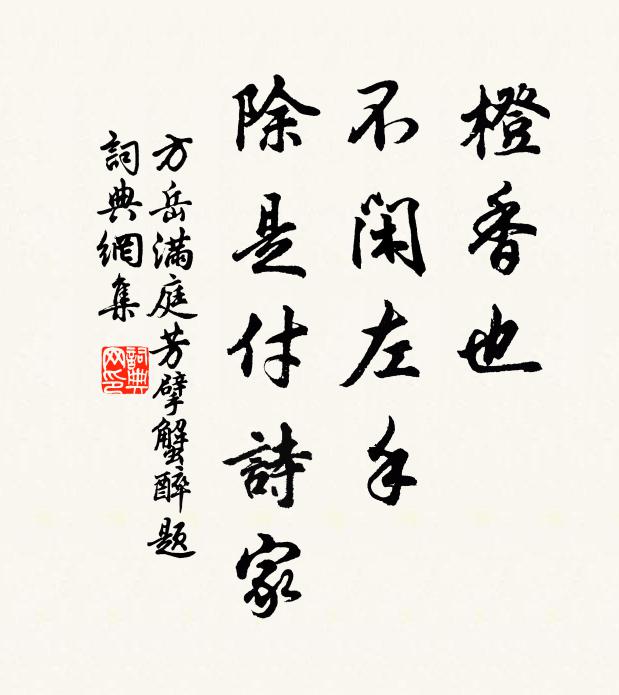 橙香也
不閑左手
除是付詩家
方岳滿庭芳擘蟹醉題
詞典網集
詞典网印